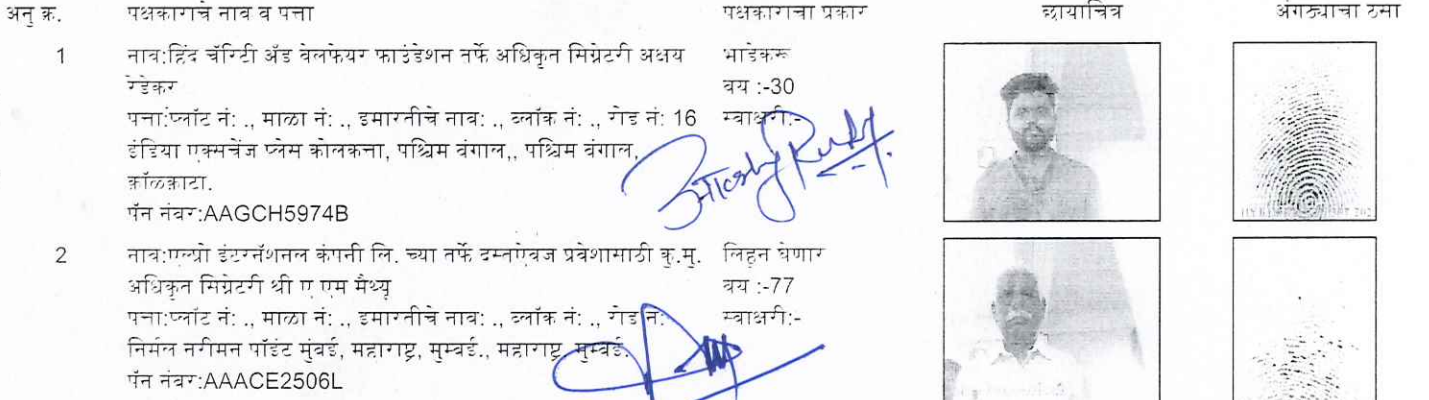 अनु क्र. पक्षकाराचे नाव व पत्ता पक्षकाराचा प्रकार छायाचित्र अंगठ्याचा ठसा
1 नाव:हिंद चॅरिटी अँड वेलफेयर फाउंडेशन तर्फे अधिकृत सिग्नेटरी अक्षय भाडेकरू
रेडेकर वय :-30
पत्ता:प्लॉट नं: ., माळा नं: ., इमारतीचे नाव: ., ब्लॉक नं: ., रोड नं: 16 स्वाक्षरी:-
इंडिया एक्सचेंज प्लेस कोलकत्ता, पश्चिम बंगाल,, पश्चिम बंगाल,
कॉलकाटा.
पॅन नंबर:AAGCH5974B
2 नाव:एल्प्रो इंटरनॅशनल कंपनी लि. च्या तर्फे दस्तऐवज प्रवेशासाठी कु.मु. लिहून घेणार
अधिकृत सिग्नेटरी श्री ए एम मैथ्यू वय :-77
पत्ता:प्लॉट नं: ., माळा नं: ., इमारतीचे नाव: ., ब्लॉक नं: ., रोड नं: स्वाक्षरी:-
निर्मल नरीमन पॉइंट मुंबई, महाराष्ट्र, मुम्बई., महाराष्ट्र, मुम्बई.
पॅन नंबर:AAACE2506L